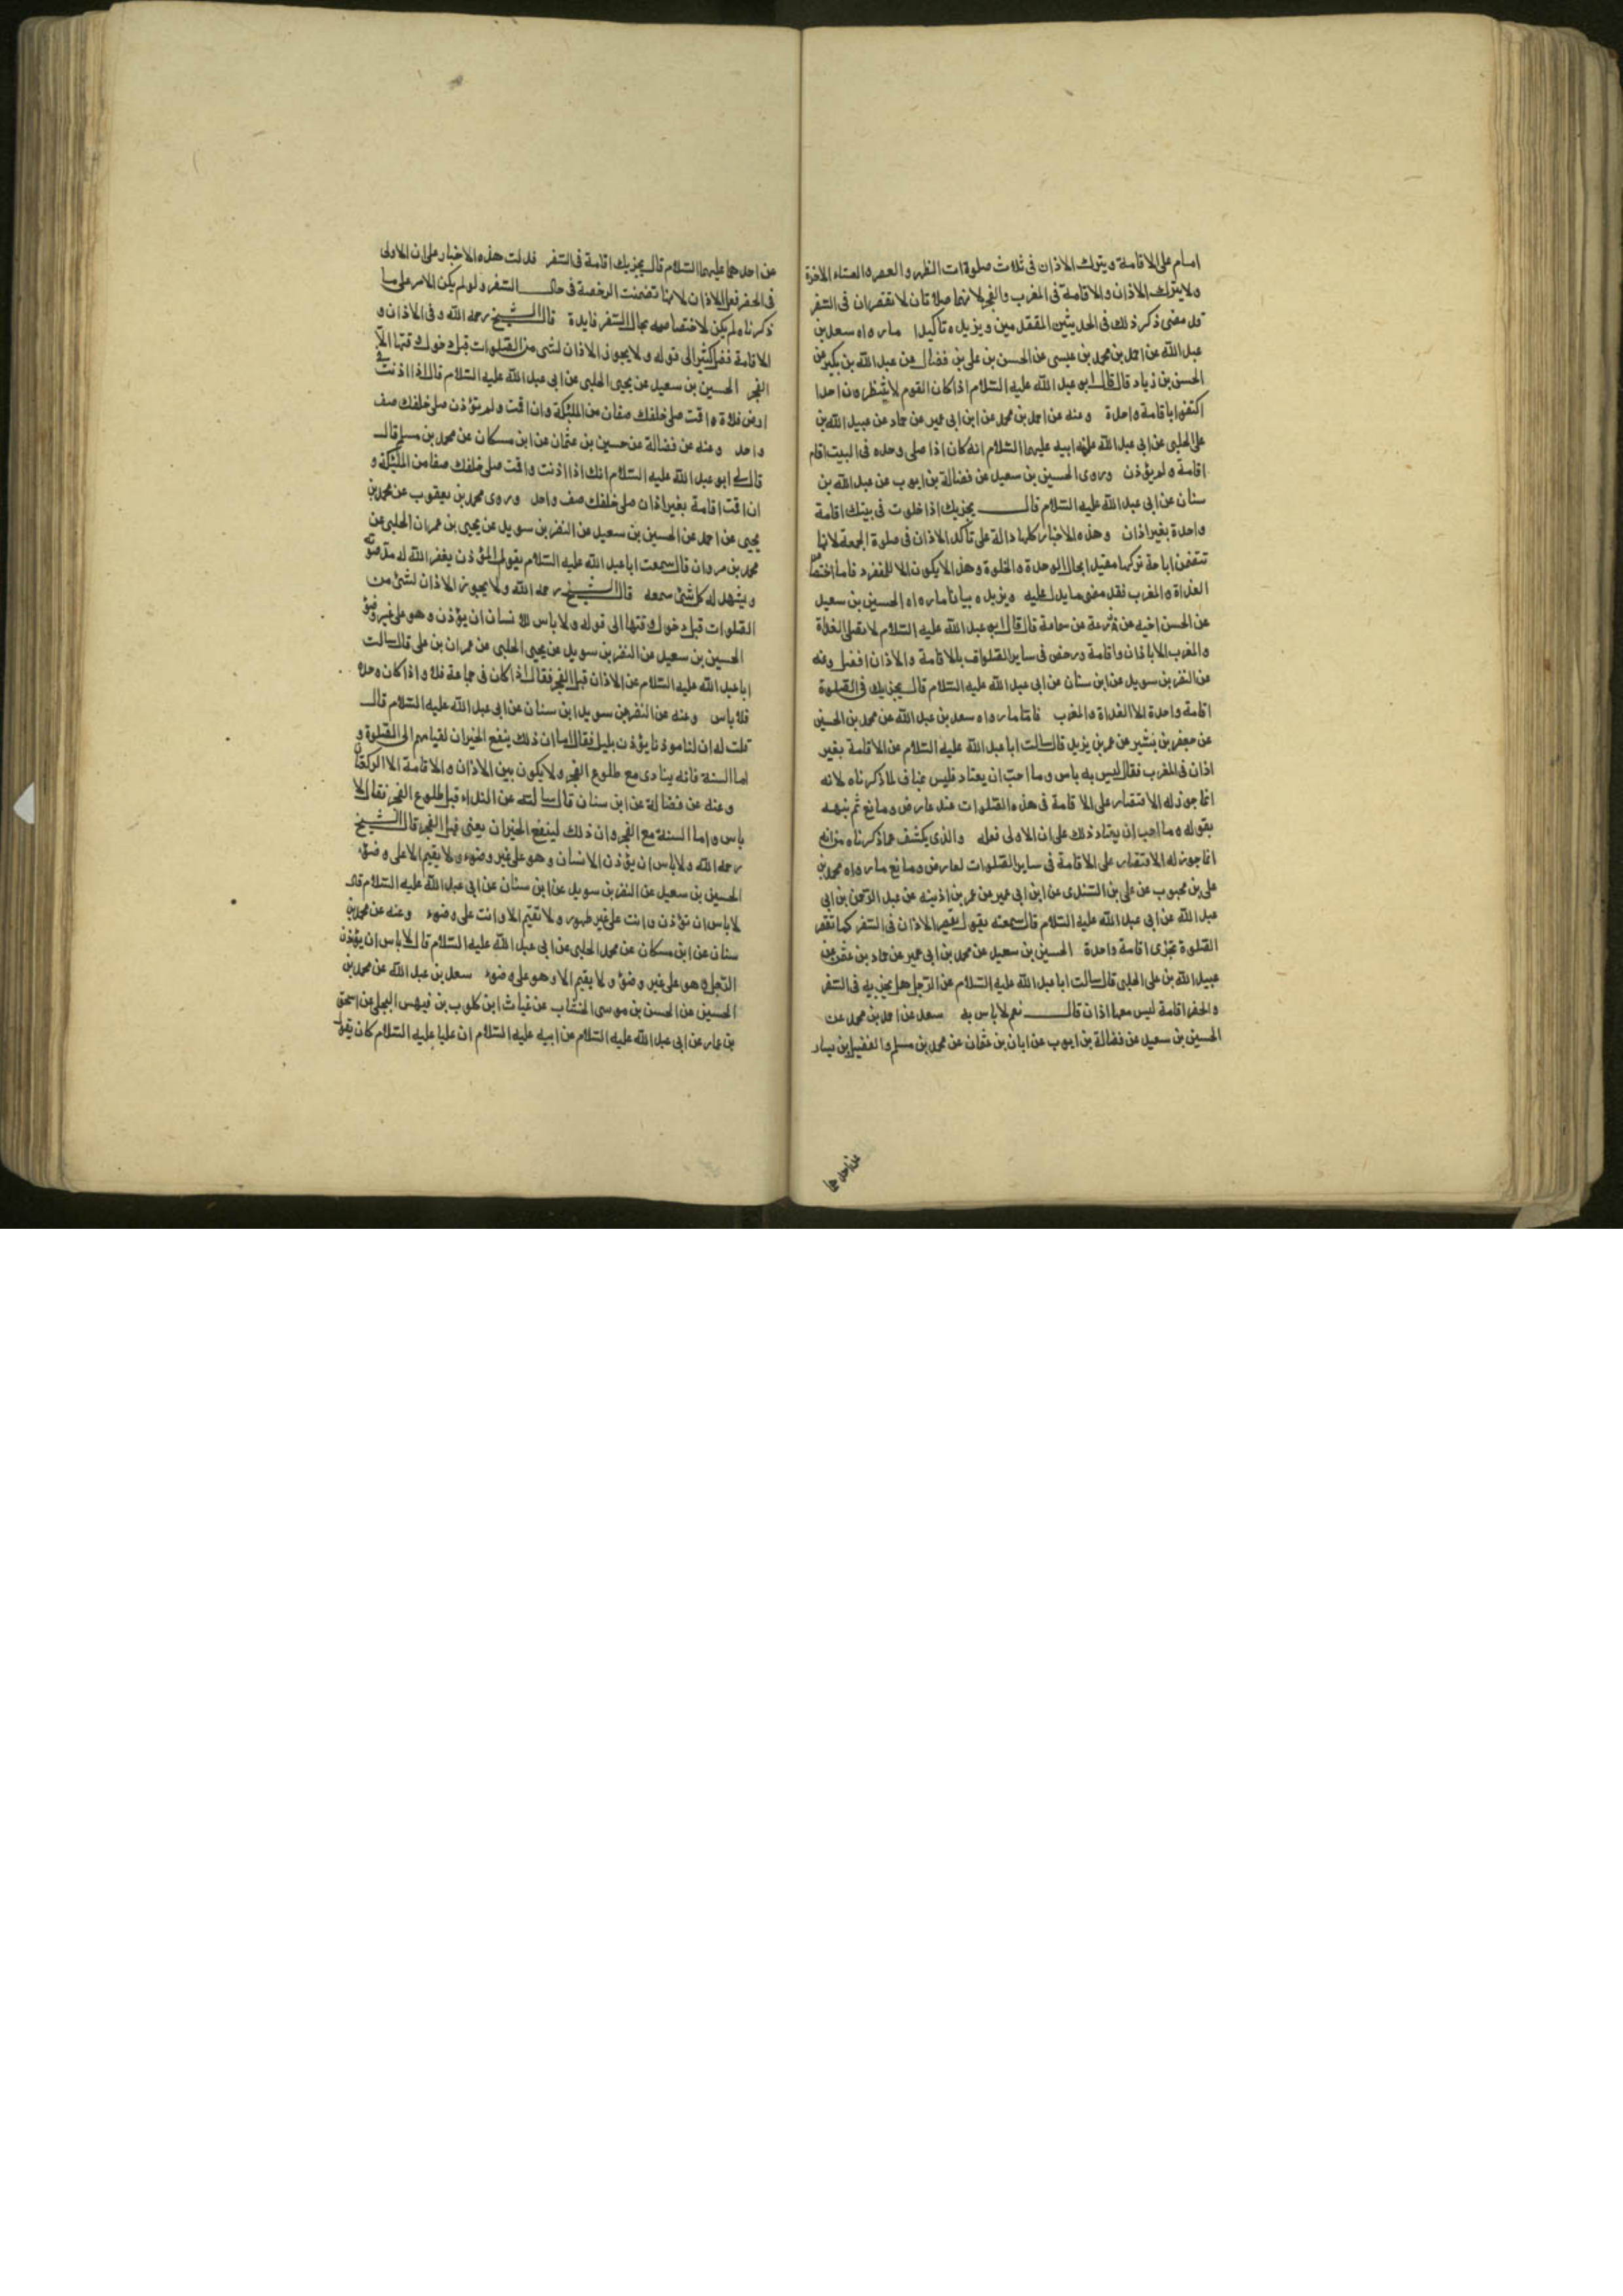 امام على الاقامة ويترك الاذان فى ثلاث صلوات الظهر والعصر والعشاء الاخرة
ولا يترك الاذان والاقامة فى المغرب والفجر لانهما صلاتان لا تقصران فى السفر
قد مضى ذكر ذلك فى الحديثين المتقدمين ويزيده تاكيدا ما رواه سعد بن
عبد الله عن احمد بن محمد بن عيسى عن الحسن بن على بن فضال عن عبد الله بن بكير عن
الحسن بن زياد قال قال ابو عبد الله عليه السلام اذا كان القوم لا ينتظرون احدا
اكتفوا باقامة واحدة وعنه عن احمد بن محمد عن ابن ابى عمير عن حماد عن عبيد الله بن
على الحلبى عن ابى عبد الله عن ابيه عليهما السلام انه كان اذا صلى وحده فى البيت اقام
اقامة ولم يؤذن وروى الحسين بن سعيد عن فضالة بن ايوب عن عبد الله بن
سنان عن ابى عبد الله عليه السلام قال يجزيك اذا خلوت فى بيتك اقامة
واحدة بغير اذان وهذه الاخبار كلها دالة على تاكد الاذان فى صلوة الجمعة لانها
تتضمن اباحة تركها مقيدا بحال الوحدة والخلوة وهذا لا يكون الا للمنفرد فاما اختصاص
الغداة والمغرب فقد مضى ما يدل عليه ويزيده بيانا ما رواه الحسين بن سعيد
عن الحسن اخيه عن زرعة عن سماعة قال قال ابو عبد الله عليه السلام لا تصل الغداة
والمغرب الا باذان واقامة ورخص فى ساير الصلوات بالاقامة والاذان افضل وعنه
عن النضر بن سويد عن ابن سنان عن ابى عبد الله عليه السلام قال يجزيك فى الصلوة
اقامة واحدة الا الغداة والمغرب فاما ما رواه سعد بن عبد الله عن محمد بن الحسين
عن جعفر بن بشير عن عمر بن يزيد قال سالت ابا عبد الله عليه السلام عن الاقامة بغير
اذان فى المغرب فقال ليس به باس وما احب ان يعتاد فليس بمناف لما ذكرناه لانه
انما جوز له الاقتصار على الاقامة فى هذه الصلوات عند عارض ومانع ثم نبهه
بقوله وما احب ان يعتاد ذلك على ان الاولى فعله والذى يكشف عما ذكرناه من انه
انما جوز له الاقتصار على الاقامة فى ساير الصلوات لعارض ومانع ما رواه محمد بن
على بن محبوب عن على بن السندى عن ابن ابى عمير عن عمر بن اذينه عن عبد الرحمن بن ابى
عبد الله عن ابى عبد الله عليه السلام قال سمعته يقول يقصر الاذان فى السفر كما تقصر
الصلوة تجزى اقامة واحدة الحسين بن سعيد عن محمد بن ابى عمير عن حماد بن عثمن عن
عبيد الله بن على الحلبى قال سالت ابا عبد الله عليه السلام عن الرجل هل يجزيه فى السفر
والحضر اقامة ليس معها اذان قال نعم لا باس به سعد عن احمد بن محمد عن
الحسين بن سعيد عن فضالة بن ايوب عن ابان بن عثمان عن محمد بن مسلم والفضيل بن يسار
عن احدهما
عن احدهما عليهما السلام قال يجزيك اقامة فى السفر فدلت هذه الاخبار على ان الاولى
فى الحضر فعل الاذان لانها تضمنت الرخصة فى حال السفر ولو لم يكن الامر على ما
ذكرناه لم يكن لاختصاصه بحال السفر فايدة قال الشيخ رحمه الله وفى الاذان و
الاقامة فضل كثير الى قوله ولا يجوز الاذان لشى من الصلوات قبل دخول وقتها الا
الفجر الحسين بن سعيد عن يحيى الحلبى عن ابى عبد الله عليه السلام قال اذا اذنت فى
ارض فلاة واقمت صلى خلفك صفان من الملئكة وان اقمت ولم تؤذن صلى خلفك صف
واحد وعنه عن فضالة عن حسين بن عثمان عن ابن مسكان عن محمد بن مسلم قال
قال لى ابو عبد الله عليه السلام انك اذا اذنت واقمت صلى خلفك صفان من الملئكة و
ان اقمت اقامة بغير اذان صلى خلفك صف واحد وروى محمد بن يعقوب عن محمد بن
يحيى عن احمد عن الحسين بن سعيد عن النضر بن سويد عن يحيى بن عمران الحلبى عن
محمد بن مروان قال سمعت ابا عبد الله عليه السلام يقول المؤذن يغفر الله له مد صوته
ويشهد له كل شئ سمعه قال الشيخ رحمه الله ولا يجوز الاذان لشئ من
الصلوات قبل دخول وقتها الى قوله ولا باس للانسان ان يؤذن وهو على غير وضوء
الحسين بن سعيد عن النضر بن سويد عن يحيى الحلبى عن عمران بن على قال سالت
ابا عبد الله عليه السلام عن الاذان قبل الفجر فقال اذا كان فى جماعة فلا واذا كان وحده
فلا باس وعنه عن النضر عن سويد ابن سنان عن ابى عبد الله عليه السلام قال
قلت له ان لنا موذنا يؤذن بليل فقال اما ان ذلك ينفع الجيران لقيامهم الى الصلوة و
اما السنة فانه ينادى مع طلوع الفجر ولا يكون بين الاذان والاقامة الا الركعتان
وعنه عن فضالة عن ابن سنان قال سالته عن النداء قبل طلوع الفجر فقال لا
باس واما السنة مع الفجر وان ذلك لينفع الجيران يعنى قبل الفجر قال الشيخ
رحمه الله ولا باس ان يؤذن الانسان وهو على غير وضوء ولا يقيم الا على وضوء
الحسين بن سعيد عن النضر بن سويد عن ابن سنان عن ابى عبد الله عليه السلام قال
لا باس ان تؤذن وانت على غير طهور ولا تقيم الا وانت على وضوء وعنه عن محمد بن
سنان عن ابن مسكان عن محمد الحلبى عن ابى عبد الله عليه السلام قال لا باس ان يؤذن
الرجل وهو على غير وضوء ولا يقيم الا وهو على وضوء سعد بن عبد الله عن محمد بن
الحسين عن الحسن بن موسى الخشاب عن غياث ابن كلوب بن فيهس البجلى عن اسحق
بن عمار عن ابى عبد الله عليه السلام عن ابيه عليه السلام ان عليا عليه السلام كان يقول